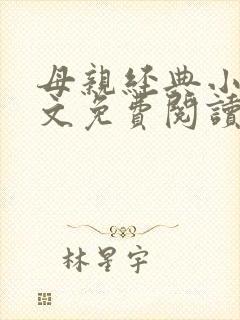 母親經典小
文免費閱讀
林星宇